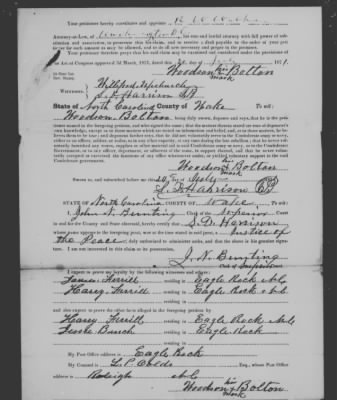 Your petitioner hereby constitutes and appoints
Attorney-at-Law, of Washington DC his true and lawful attorney with full power of sub-
stitution and association, to prosecute this his claim, and to receive a draft payable to the order of your peti-
tioner for such amount as may be allowed, and to do all acts necessary and proper in the premises.
That your petitioner hereby avers that this claim is considered under the provisions of
the Act of Congress approved 3d March, 1871, dated July 1871.
Woodson his Bolton
mark
WITNESSES: Willford Upchurch
S. D. Harrison JP
State of North Carolina County of Wake To wit:
Woodson Bolton being duly sworn, deposes and says, that he is the peti-
tioner named in the foregoing petition, and who signed the same; that the matters therein stated are true of deponent's
own knowledge, except as to those matters which are stated on information and belief, and as to those matters, he be-
lieves them to be true; and deponent further says, that he did not voluntarily serve in the Confederate army or navy,
either as an officer, soldier, or sailor, or in any other capacity, at any time during the late rebellion; that he never vol-
untarily furnished any stores, supplies or other material aid to said Confederate army or navy, or to the Confederate
Government, or to any officer, department, or adherent of the same, in support thereof, and that he never volun-
tarily accepted or exercised the functions of any office whatsoever under, or yielding voluntary support to, the said
Confederate government.
Woodson his Bolton
mark
Sworn to, and subscribed before me this 20 day July
S. D. Harrison JP
STATE OF North Carolina COUNTY OF Wake, To wit:
I John N. Bunting Clerk of Superior Court
in and for the County and State aforesaid, hereby certify that S. D. Harrison
whose name appears to the foregoing jurat, was at the time said is dated, a Justice of
the Peace, duly authorized to administer oaths, and that the above is his genuine signa-
ture. I am not interested in this claim or its prosecution.
J. N. Bunting
Clerk of Superior Court
I expect to prove my loyalty by the following witnesses and others:
James Ferrell residing in Eagle Rock N.C.
Harry Ferrell residing in Eagle Rock N.C.
and expect to prove the other facts alleged in the foregoing petition by
Harry Ferrell residing in Eagle Rock N.C.
Bunch residing in Eagle Rock
residing in
My Post Office address is Eagle Rock
My Counsel is Esq., whose Post Office
address is Raleigh N.C.
Woodson his Bolton
mark